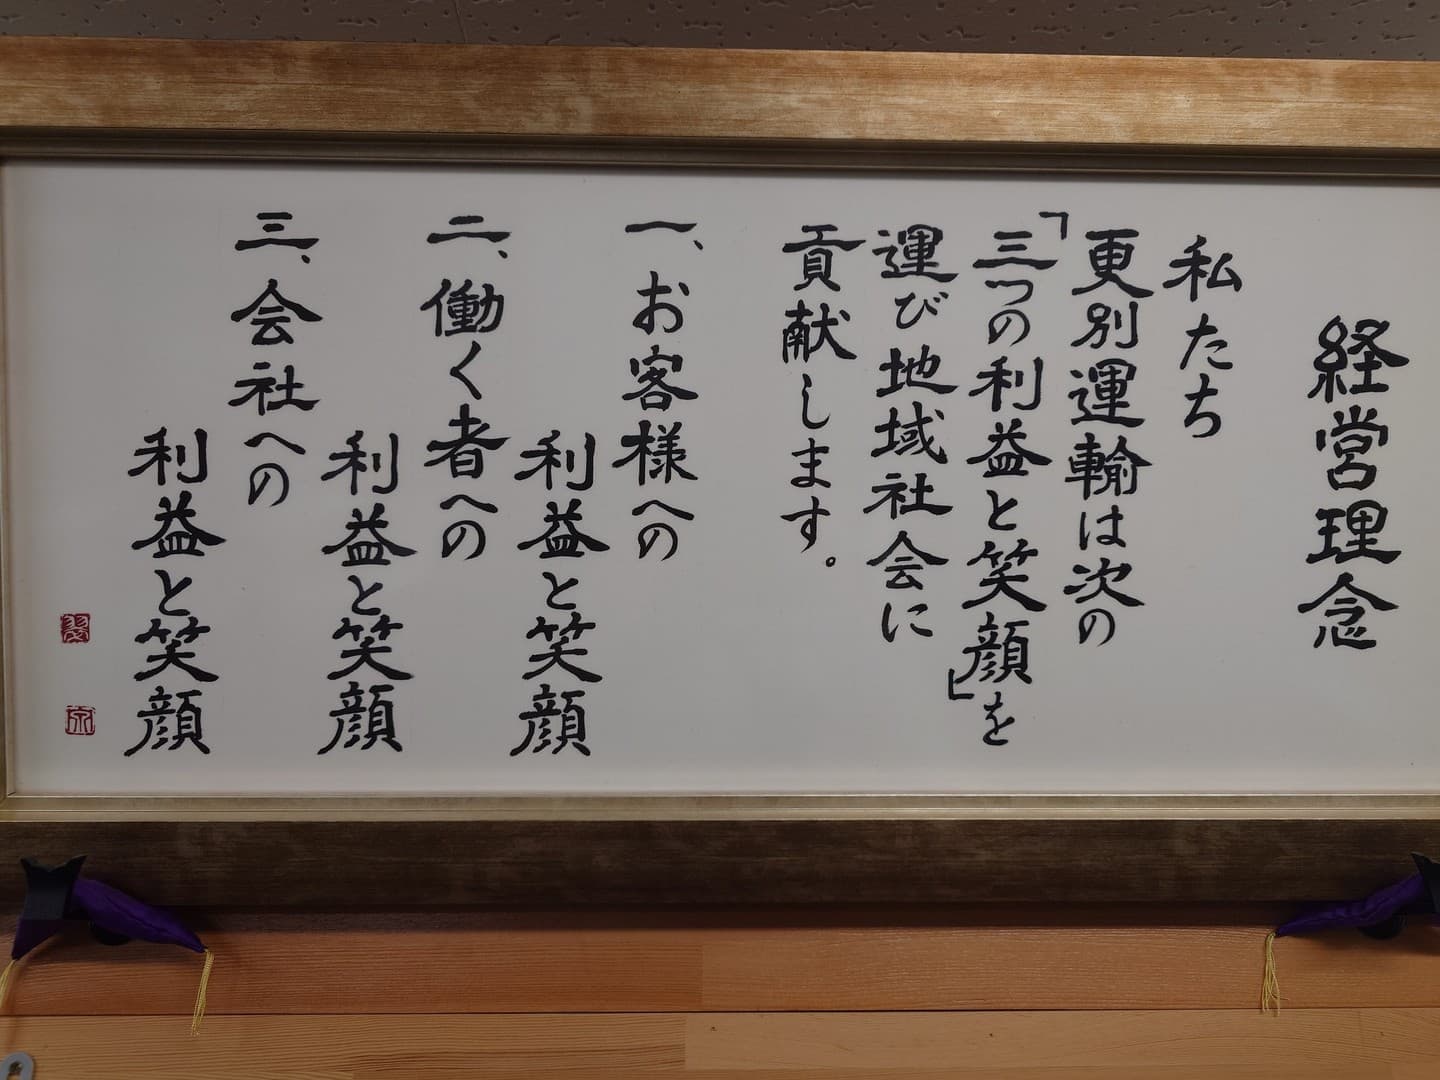 経営理念
私たち
更別運輸は次の
「三つの利益と笑顔」を
運び地域社会に
貢献します。
一、お客様への
利益と笑顔
二、働く者への
利益と笑顔
三、会社への
利益と笑顔